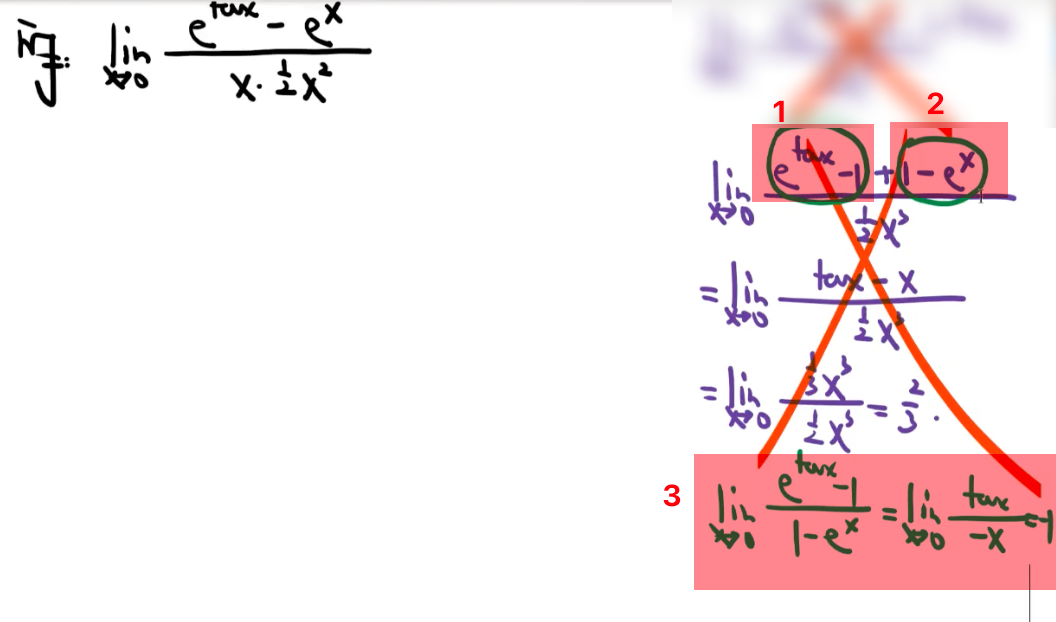 lim x→0 (e^tanx - e^x) / (x·½x²)
1 2
lim x→0 (e^tanx -1 + 1-e^x) / (½x³)
= lim x→0 (tanx - x) / (½x³)
= lim x→0 (⅓x³) / (½x³) = ⅔.
3 lim x→0 (e^tanx -1) / (1-e^x) = lim x→0 tanx / -x = -1